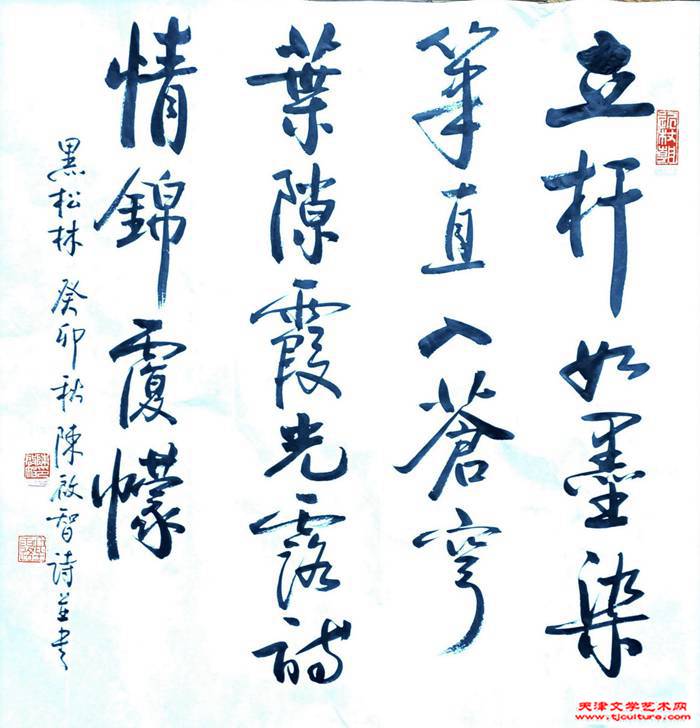 立杆如墨染
筆直入蒼穹
葉隙霞光露詩
情錦覆幪
黑松林 癸卯秋陳啟智詩並書
天津文学艺术网
(www.tjculture.com)